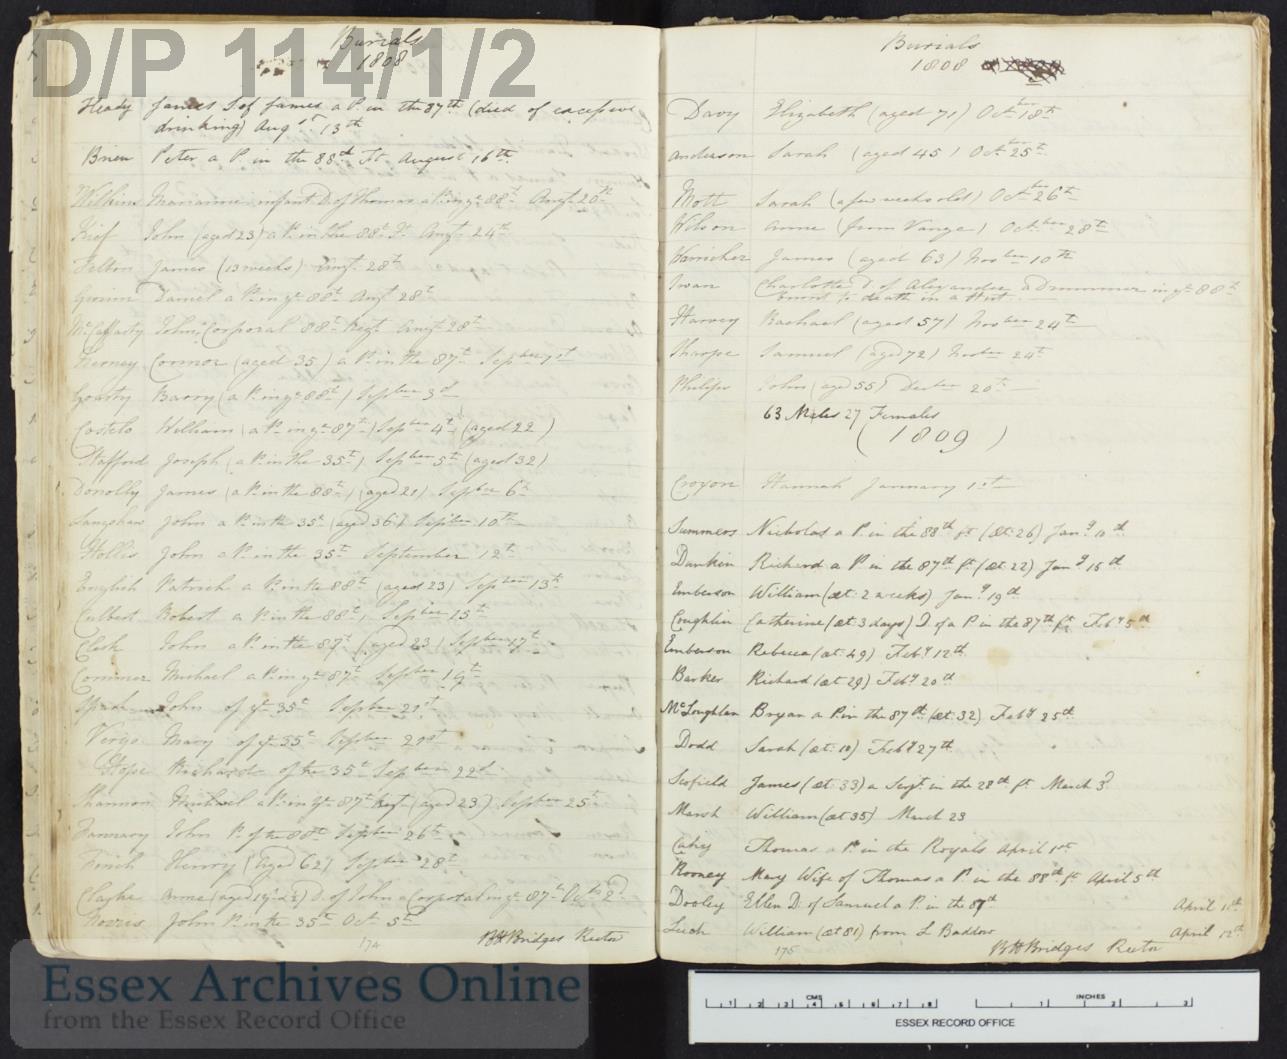 D/P 114/1/2
Burials
1808
Heady James S. of James a P. in the 87th (died of excessive
drinking) Augst 13th
Brien Peter a P. in the 88th Ft August 16th
Wilkins Marianne infant D. of Thomas a P. in ye 88th Augt 20th
Kief John (aged 23) a P. in the 88th Ft Augt 24th
Felton James (13 weeks) Augt 28th
Daniel a P. in ye 88th Augt 28th
McCafferty John Corporal 88th Regt Augt 28th
Connor (aged 35) a P. in the 87th Sepber 1st
Barry (a P. in ye 88th) Sepber 3d
Costelo William (a P. in ye 87th) Sepber 4th (aged 22)
Stafford Joseph (a P. in the 35th) Sepber 5th (aged 32)
Donolly James (a P. in the 88th) (aged 21) Sepber 6th
Langshaw John a P. in the 35th (aged 36) Sepber 10th
Hollis John a P. in the 35th September 12th
English Patrick a P. in the 88th (aged 23) Sepber 13th
Culbert Robert a P. in the 88th Sepber 15th
John a P. in the 87th (aged 23) Sepber 17th
Michael a P. in ye 87th Sepber 19th
John of ye 35th Sepber 21st
Virgo Mary of ye 35th Sepber 21st
Hope Richard of the 35th Sepber 22d
Shannon Michael a P. in ye 87th Regt (aged 23) Sepber 25th
January John P. of the 88th Sepber 26th
Finch Henry (Aged 62) Sepber 28th
Anne D. of John a Corporal in ye 87th Octr 2d
Norris John P. in the 35th Oct 5th
174
BHBridges Rector
Burials
1808
Davy Elizabeth (aged 71) Octber 18th
Anderson Sarah (aged 45) Octber 25th
Mott Sarah (a few weeks old) Octber 26th
Wilson Anne (from Vange) Octber 28th
James (aged 63) Novber 10th
Charlotte D. of Alexander a Drummer in ye 88th
burnt to death in a Hut
Harvey Rachael (aged 57) Novber 24th
Tharpe Samuel (aged 72) Novber 24th
Philips John (aged 55) Decber 20th
63 Males 27 Females
(1809)
Croxon Hannah January 1st
Summers Nicholas a P. in the 88th ft (æt: 26) Jany 10th
Dunkin Richard a P. in the 87th ft (æt: 22) Jany 15th
Emberson William (æt: 2 weeks) Jany 19th
Coughlin Catherine (æt: 3 days) D. of a P. in the 87th ft Feby 5th
Emberson Rebecca (æt: 49) Feby 12th
Barker Richard (æt 29) Feby 20th
McLoughlan Bryan a P. in the 87th (æt: 32) Feby 25th
Dodd Sarah (æt: 10) Feby 27th
Scofield James (æt: 33) a Sergt. in the 28th ft March 3d
Marsh William (æt 35) March 23
Cahy Thomas a P. in the Royals April 1st
Rooney Mary Wife of Thomas a P. in the 88th ft April 5th
Dooley Ellen D. of Samuel a P. in the 87th April 11th
Leich William (æt 81) from L Baddow April 12th
175
BHBridges Rector
Essex Archives Online
from the Essex Record Office
CMS
1 2 3 4 5 6 7 8
INCHES
1 2 3
ESSEX RECORD OFFICE